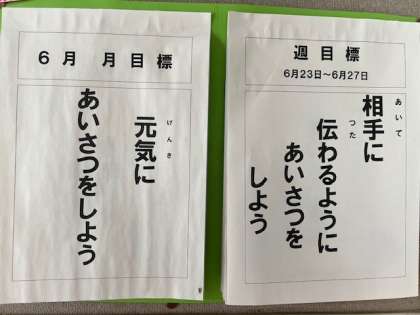 6月 月目標
元気に
げんき
あいさつをしよう
週目標
6月23日~6月27日
相手に
あいて
伝わるように
つた
あいさつを
しよう